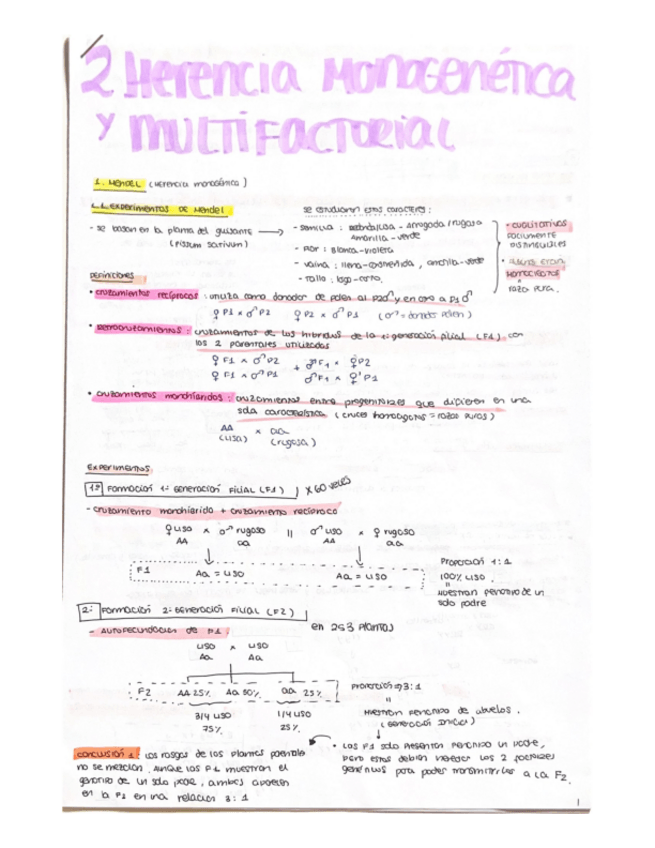 2 Herencia Monogenética
y MULTIFACTORIAL
1. MENDEL (Herencia monogénica)
1.1. EXPERIMENTOS DE Mendel
se estudiaron estos caracteres:
- se basan en la planta del guisante
(Pissum sativum)
- semilla: redonda/lisa - arrugada/rugosa
amarilla - verde
- Flor: blanca-violeta
- vaina: llena-constreñida, amarilla-verde
- Tallo: largo-corto.
- CUALITATIVOS
FACILMENTE
DISTINGUIBLES
HOMOCIGOTOS
raza pura.
DEFINICIONES
• cruzamientos recíprocos: utiliza como donador de polen al P2♂ y en otro a P1♂
♀ P1 x ♂ P2   ♀ P2 x ♂ P1   (♂ = donador polen)
• Retrocruzamientos: cruzamientos de los híbridos de la 1ª generación filial (F1) con
los 2 parentales utilizados
♀ F1 x ♂ P2 + ♂ F1 x ♀ P2
♀ F1 x ♂ P1   ♂ F1 x ♀ P1
• cruzamientos monohíbridos: cruzamientos entre progenitores que difieren en una
sola característica (cruces homocigotos = razas puras)
AA x aa
(lisa) (rugosa)
EXPERIMENTOS
1º Formación 1ª Generación FILIAL (F1) ) x 60 veces
- cruzamiento monohíbrido + cruzamiento recíproco
♀ liso x ♂ rugoso || ♂ liso x ♀ rugoso
AA aa AA aa
F1 Aa = liso Aa = liso
Proporción 1:1
100% liso.
"
Muestran fenotipo de un
solo padre
2ª Formación 2ª Generación FILIAL (F2)
- AUTOFECUNDACIÓN de F1: en 253 plantas
liso x liso
Aa Aa
F2 AA 25% Aa 50% aa 25%
3/4 liso 1/4 liso
75% 25%
Proporción 3:1
"
Muestran fenotipo de abuelos.
(Generación Inicial)
• Las F1 solo presentan fenotipo un padre,
pero estas deben heredar los 2 factores
genéticos para poder transmitirlos a la F2.
CONCLUSIÓN 1: Los rasgos de las plantas parentales
no se mezclan. Aunque las F1 muestran el
genotipo de un solo padre, ambos aparecen
en la F2 en una relación 3:1
1